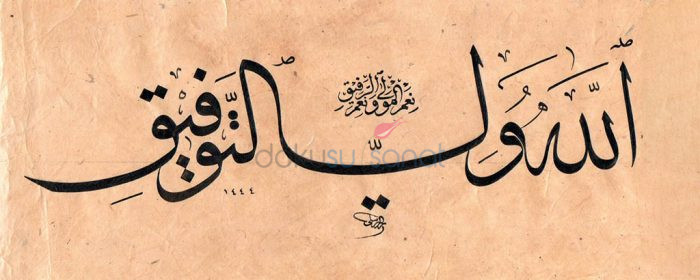 اَللّٰهُ وَلِيُّ التَّوْفِيقِ
نِعْمَ الْمَوْلَى وَنِعْمَ الرَّفِيقُ
١٤٤٤
dokusu sanat